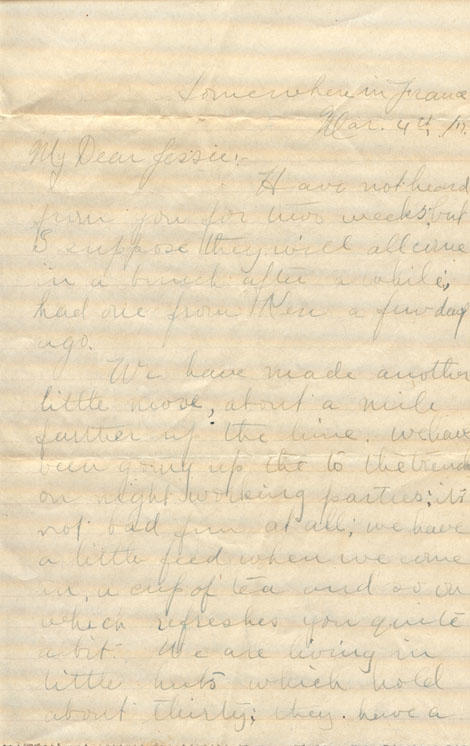 Somewhere in France
Mar. 4th /17.
My Dear Jessie:-
Have not heard
from you for two weeks, but
I suppose they will all come
in a bunch after a while,
had one from Ken a few day
ago.
We have made another
little move, about a mile
further up the line. We have
been going up the to the trench
on night working parties; it's
not bad fun at all; we have
a little feed when we come
in, a cup of tea and so on
which refreshes you quite
a bit. We are living in
little huts which hold
about thirty; they have a